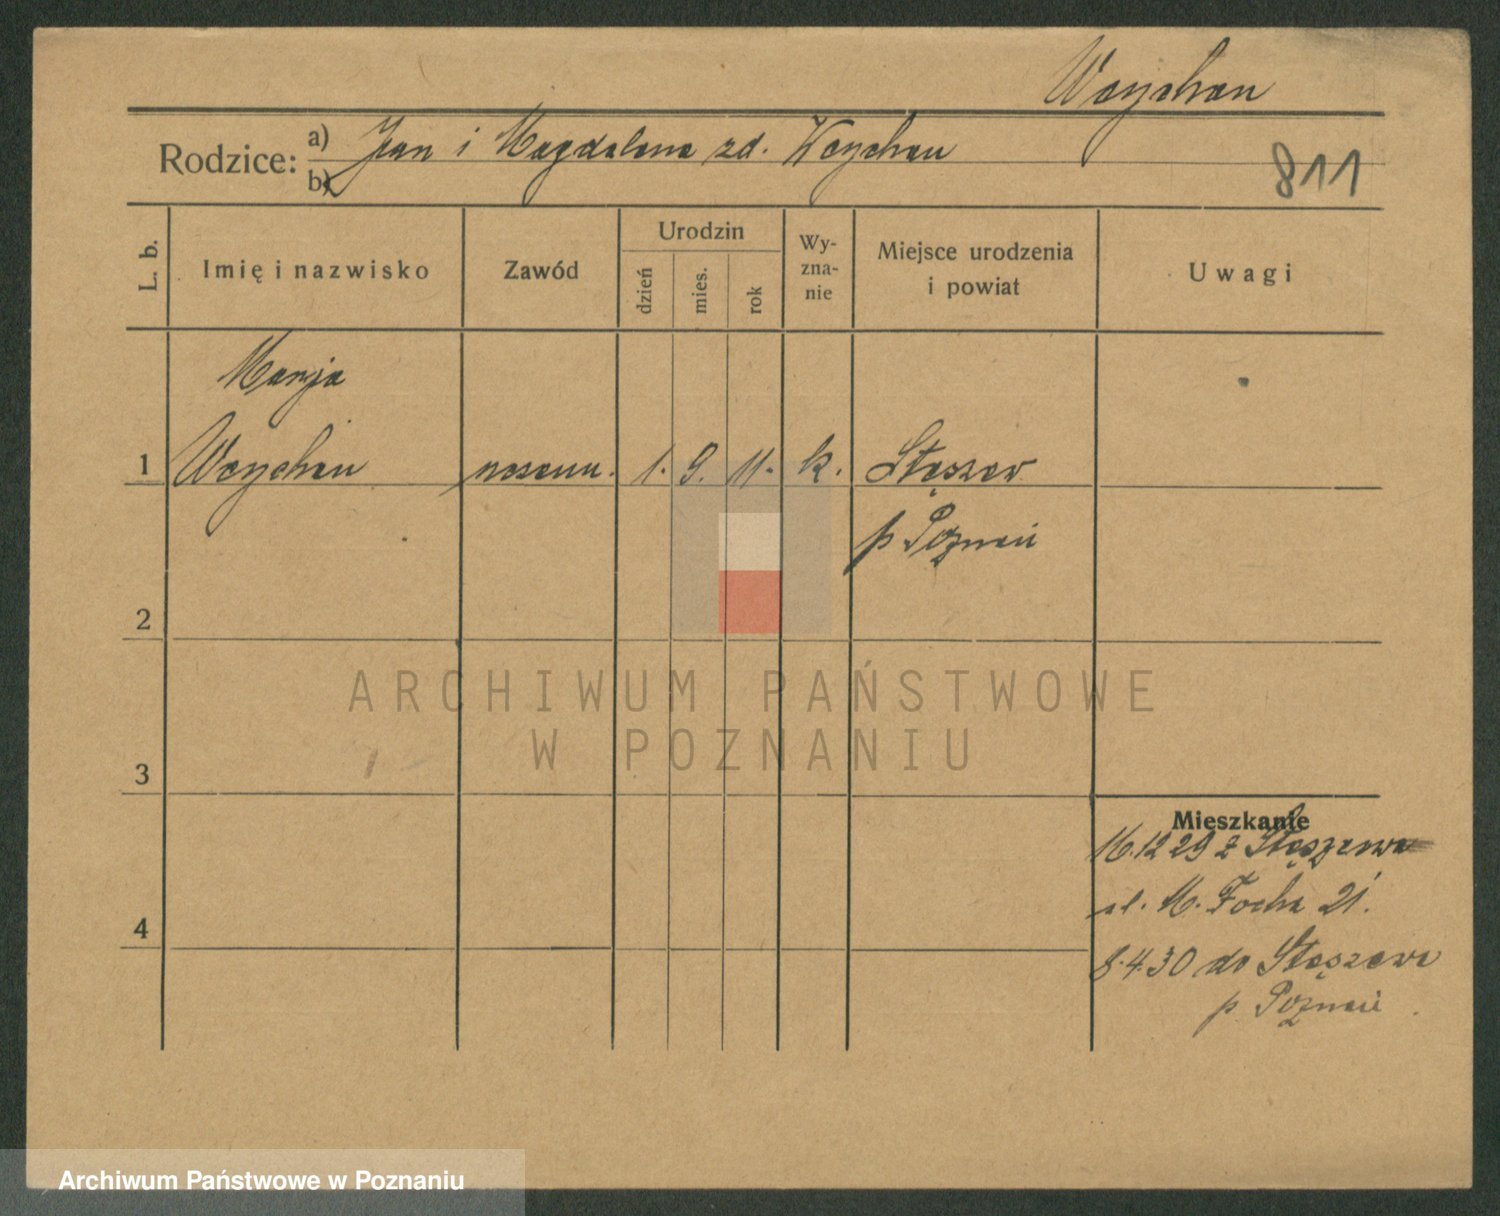 Waychan
Rodzice:
a) Jan i Magdalena zd. Waychan
b)
811
L. b.
Imię i nazwisko
Zawód
Urodzin
dzień
mies.
rok
Wy-
zna-
nie
Miejsce urodzenia
i powiat
Uwagi
Marja
1 Waychan 1. 9. 11. k. Stęszew
p Poznań
2
3
4
Mieszkanie
16.12 29 z Stęszewa
ul. M. Focha 21.
8.4.30 do Stęszewa
p. Poznań
ARCHIWUM PAŃSTWOWE
W POZNANIU
Archiwum Państwowe w Poznaniu